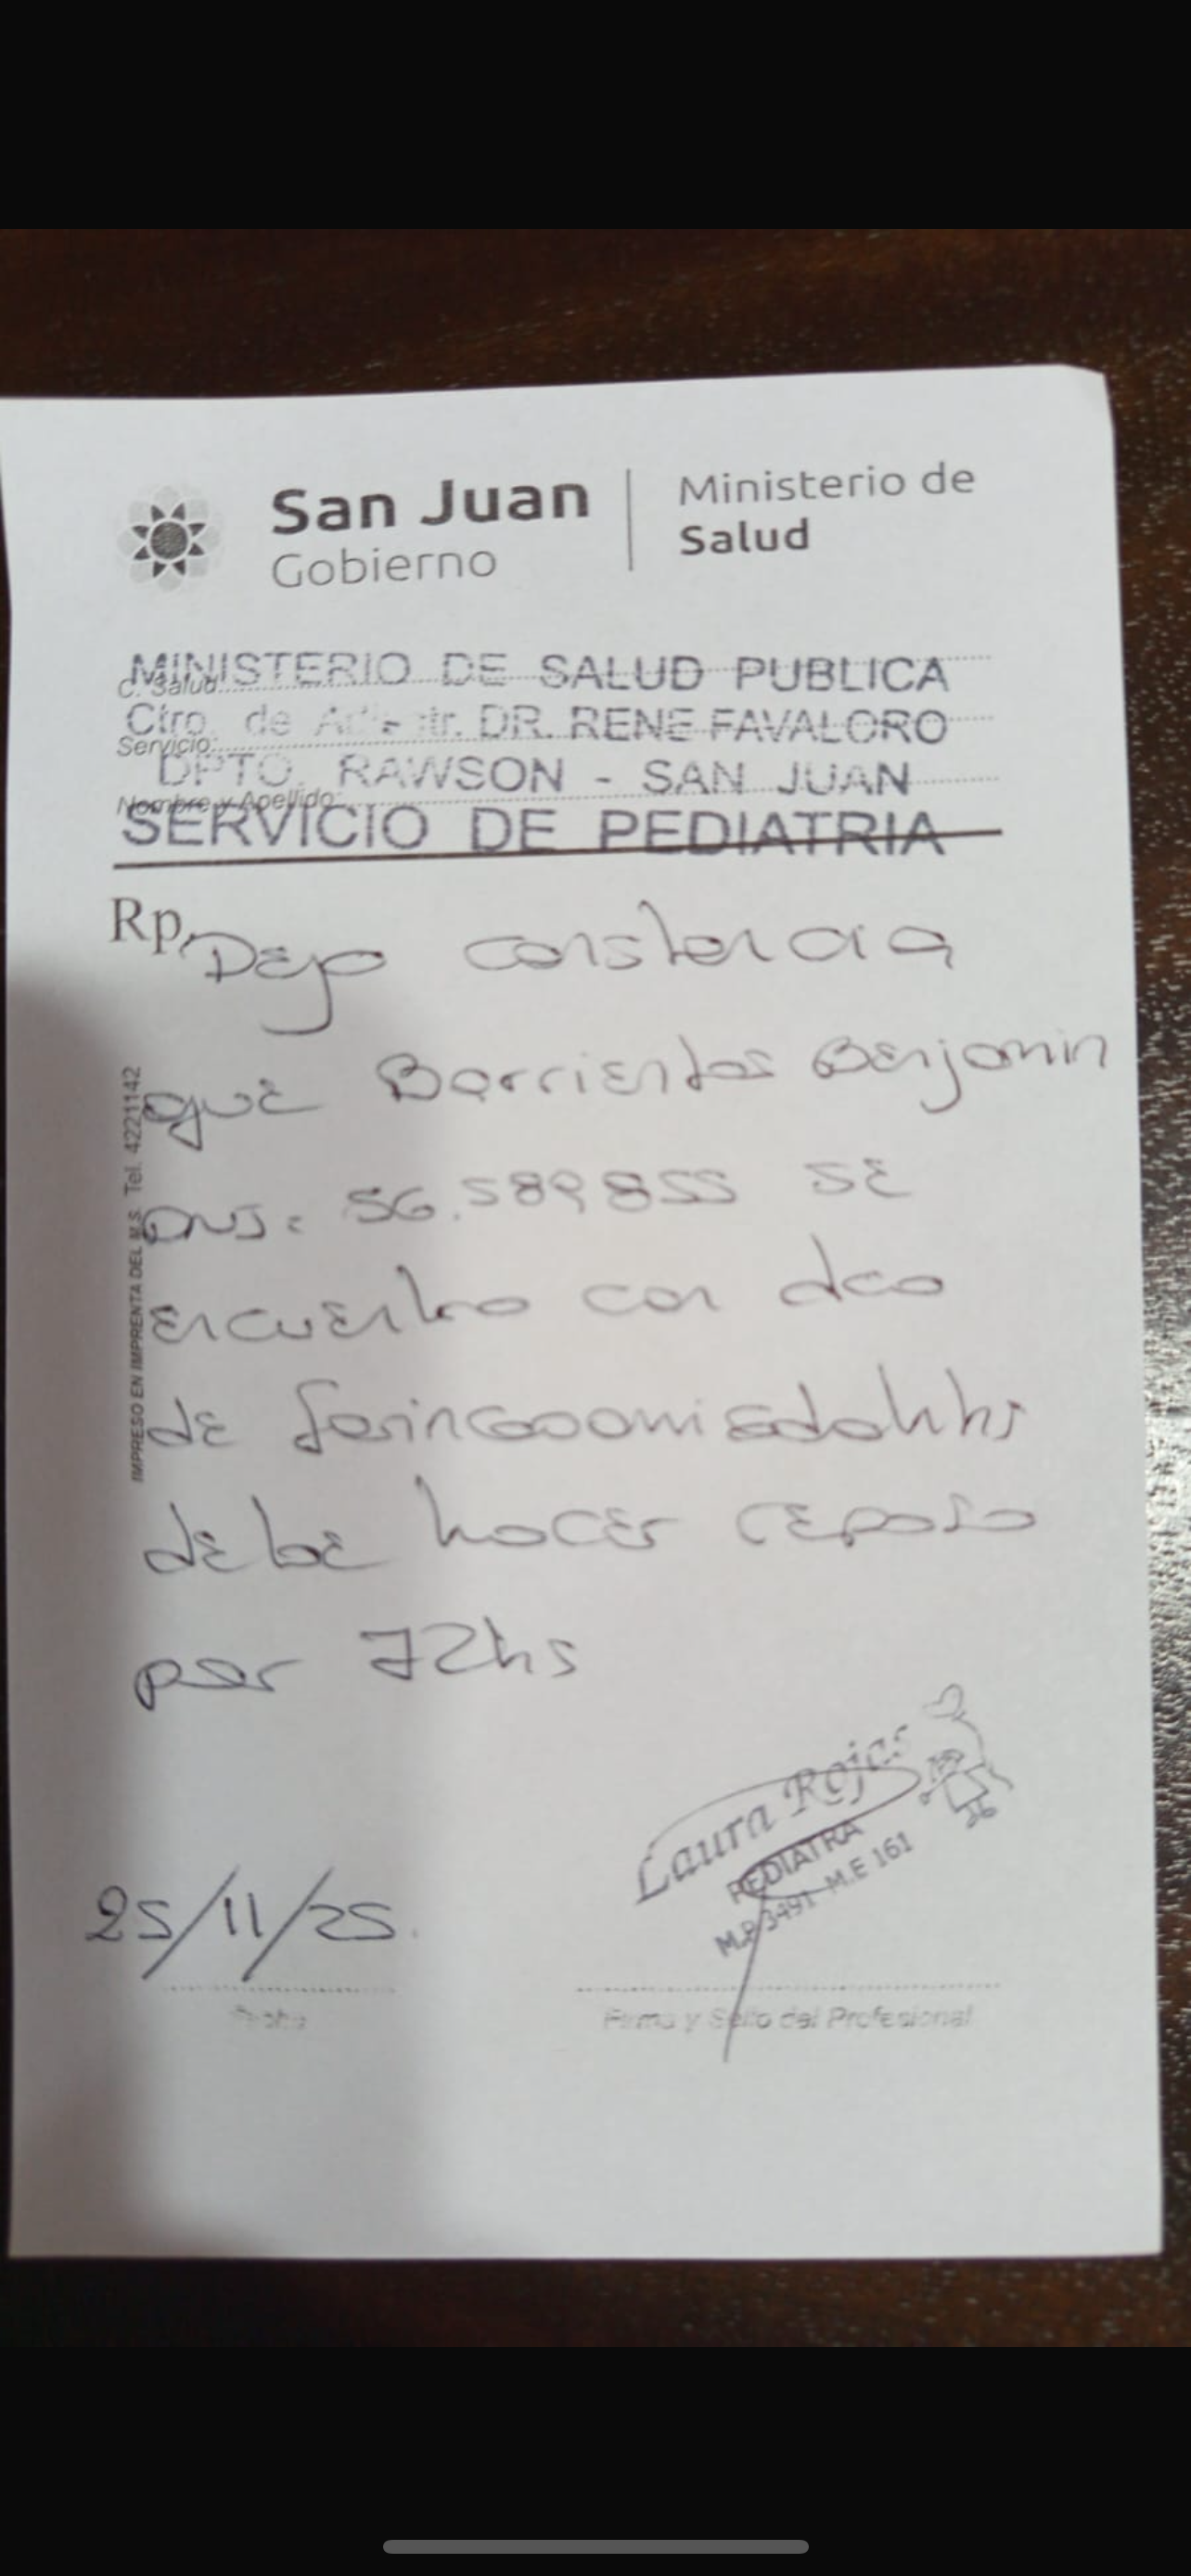 San Juan
Gobierno
Ministerio de
Salud
MINISTERIO DE SALUD PUBLICA
C. Salud
Ctro. de DR. RENE FAVALORO
Servicio
DPTO. RAWSON - SAN JUAN
Nombre y Apellido:
SERVICIO DE PEDIATRIA
Rp.
Dejo constancia
que Barrientos Benjamin
DNI: 56.589855 se
encuentra con dco
de
debe hacer reposo
por 72hs
IMPRESO EN IMPRENTA DEL M.S. Tel. 4221142
Laura Rojas
PEDIATRA
M.P. 3491 M.E 161
25/11/25.
Fecha
Firma y Sello del Profesional